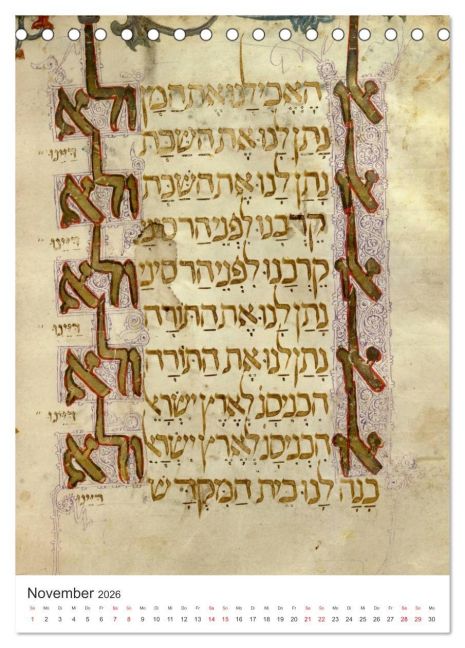 אִלּוּ הֶאֱכִילָנוּ אֶת הַמָּן וְלֹא
נָתַן לָנוּ אֶת הַשַּׁבָּת דַּיֵּינוּ
אִלּוּ נָתַן לָנוּ אֶת הַשַּׁבָּת וְלֹא
קֵרְבָנוּ לִפְנֵי הַר סִינַי דַּיֵּינוּ
אִלּוּ קֵרְבָנוּ לִפְנֵי הַר סִינַי וְלֹא
נָתַן לָנוּ אֶת הַתּוֹרָה דַּיֵּינוּ
אִלּוּ נָתַן לָנוּ אֶת הַתּוֹרָה וְלֹא
הִכְנִיסָנוּ לְאֶרֶץ יִשְׂרָאֵל דַּיֵּינוּ
אִלּוּ הִכְנִיסָנוּ לְאֶרֶץ יִשְׂרָאֵל וְלֹא
בָּנָה לָנוּ בֵּית הַמִּקְדָּשׁ דַּיֵּינוּ
November 2026
So Mo Di Mi Do Fr Sa So Mo Di Mi Do Fr Sa So Mo Di Mi Do Fr Sa So Mo Di Mi Do Fr Sa So Mo
1 2 3 4 5 6 7 8 9 10 11 12 13 14 15 16 17 18 19 20 21 22 23 24 25 26 27 28 29 30